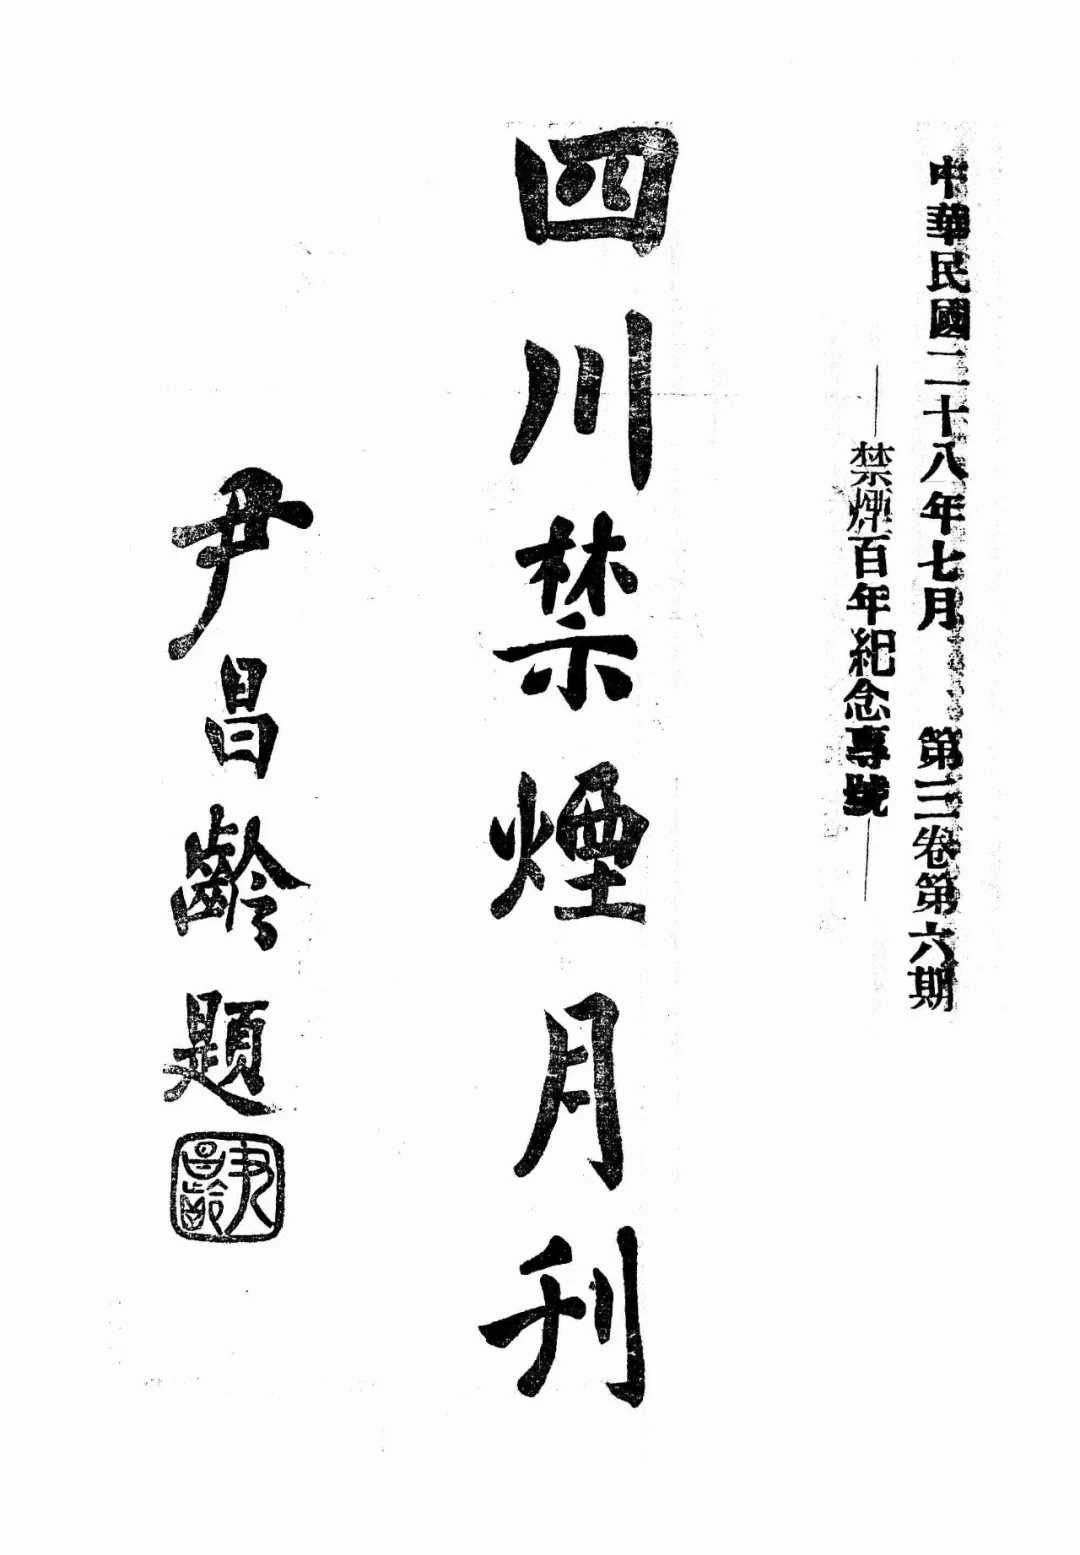 中華民國二十八年七月　第三卷第六期
——禁煙百年紀念專號——
四川禁煙月刊
尹昌齡題
尹昌齡